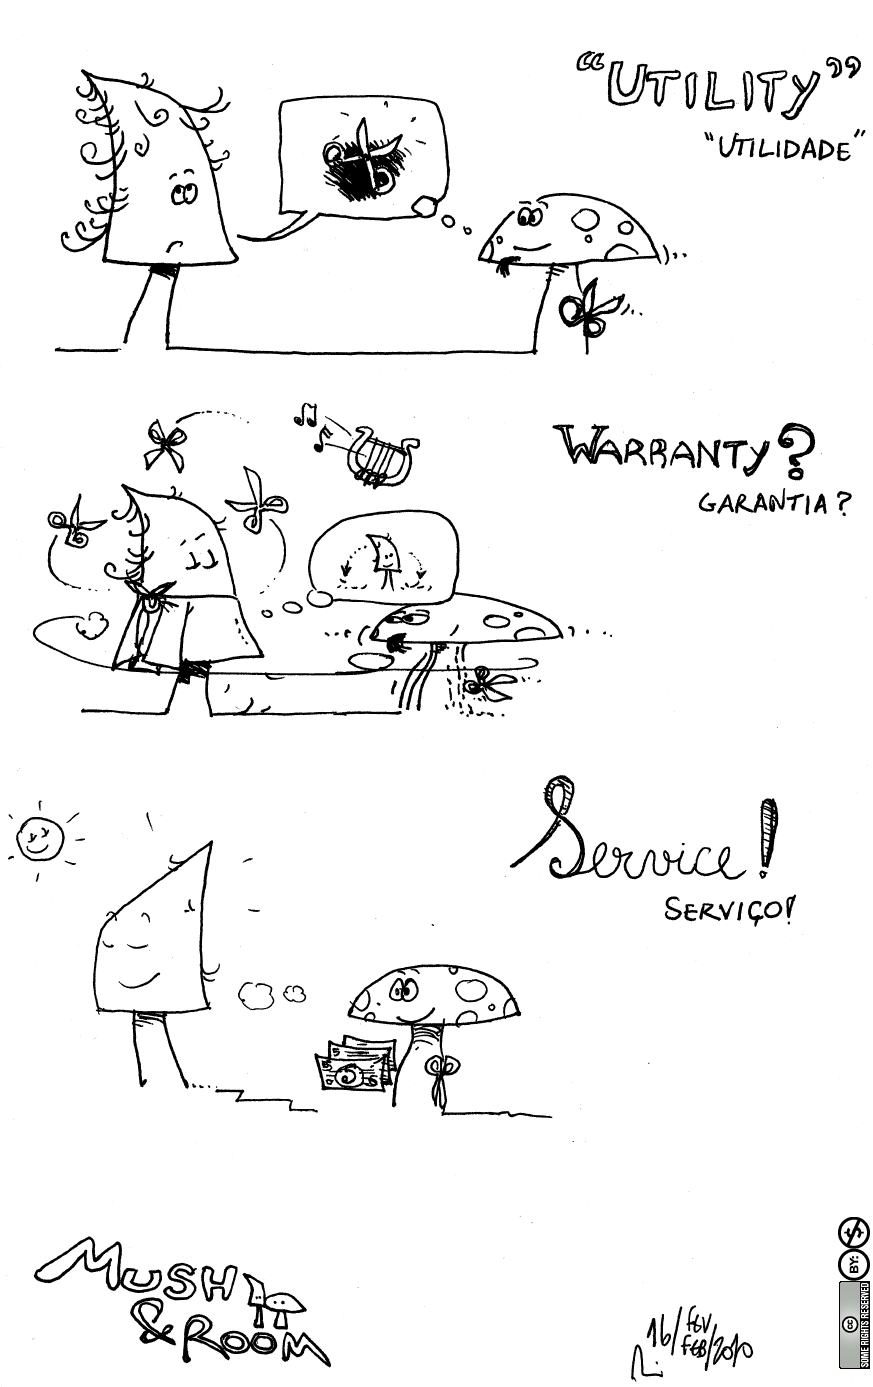 “UTILITY”
“UTILIDADE”
WARRANTY?
GARANTIA?
Service!
SERVIÇO!
5
5 5
MUSH
& ROOM
16/FEV
FEB/2010
BY:
CC
SOME RIGHTS RESERVED